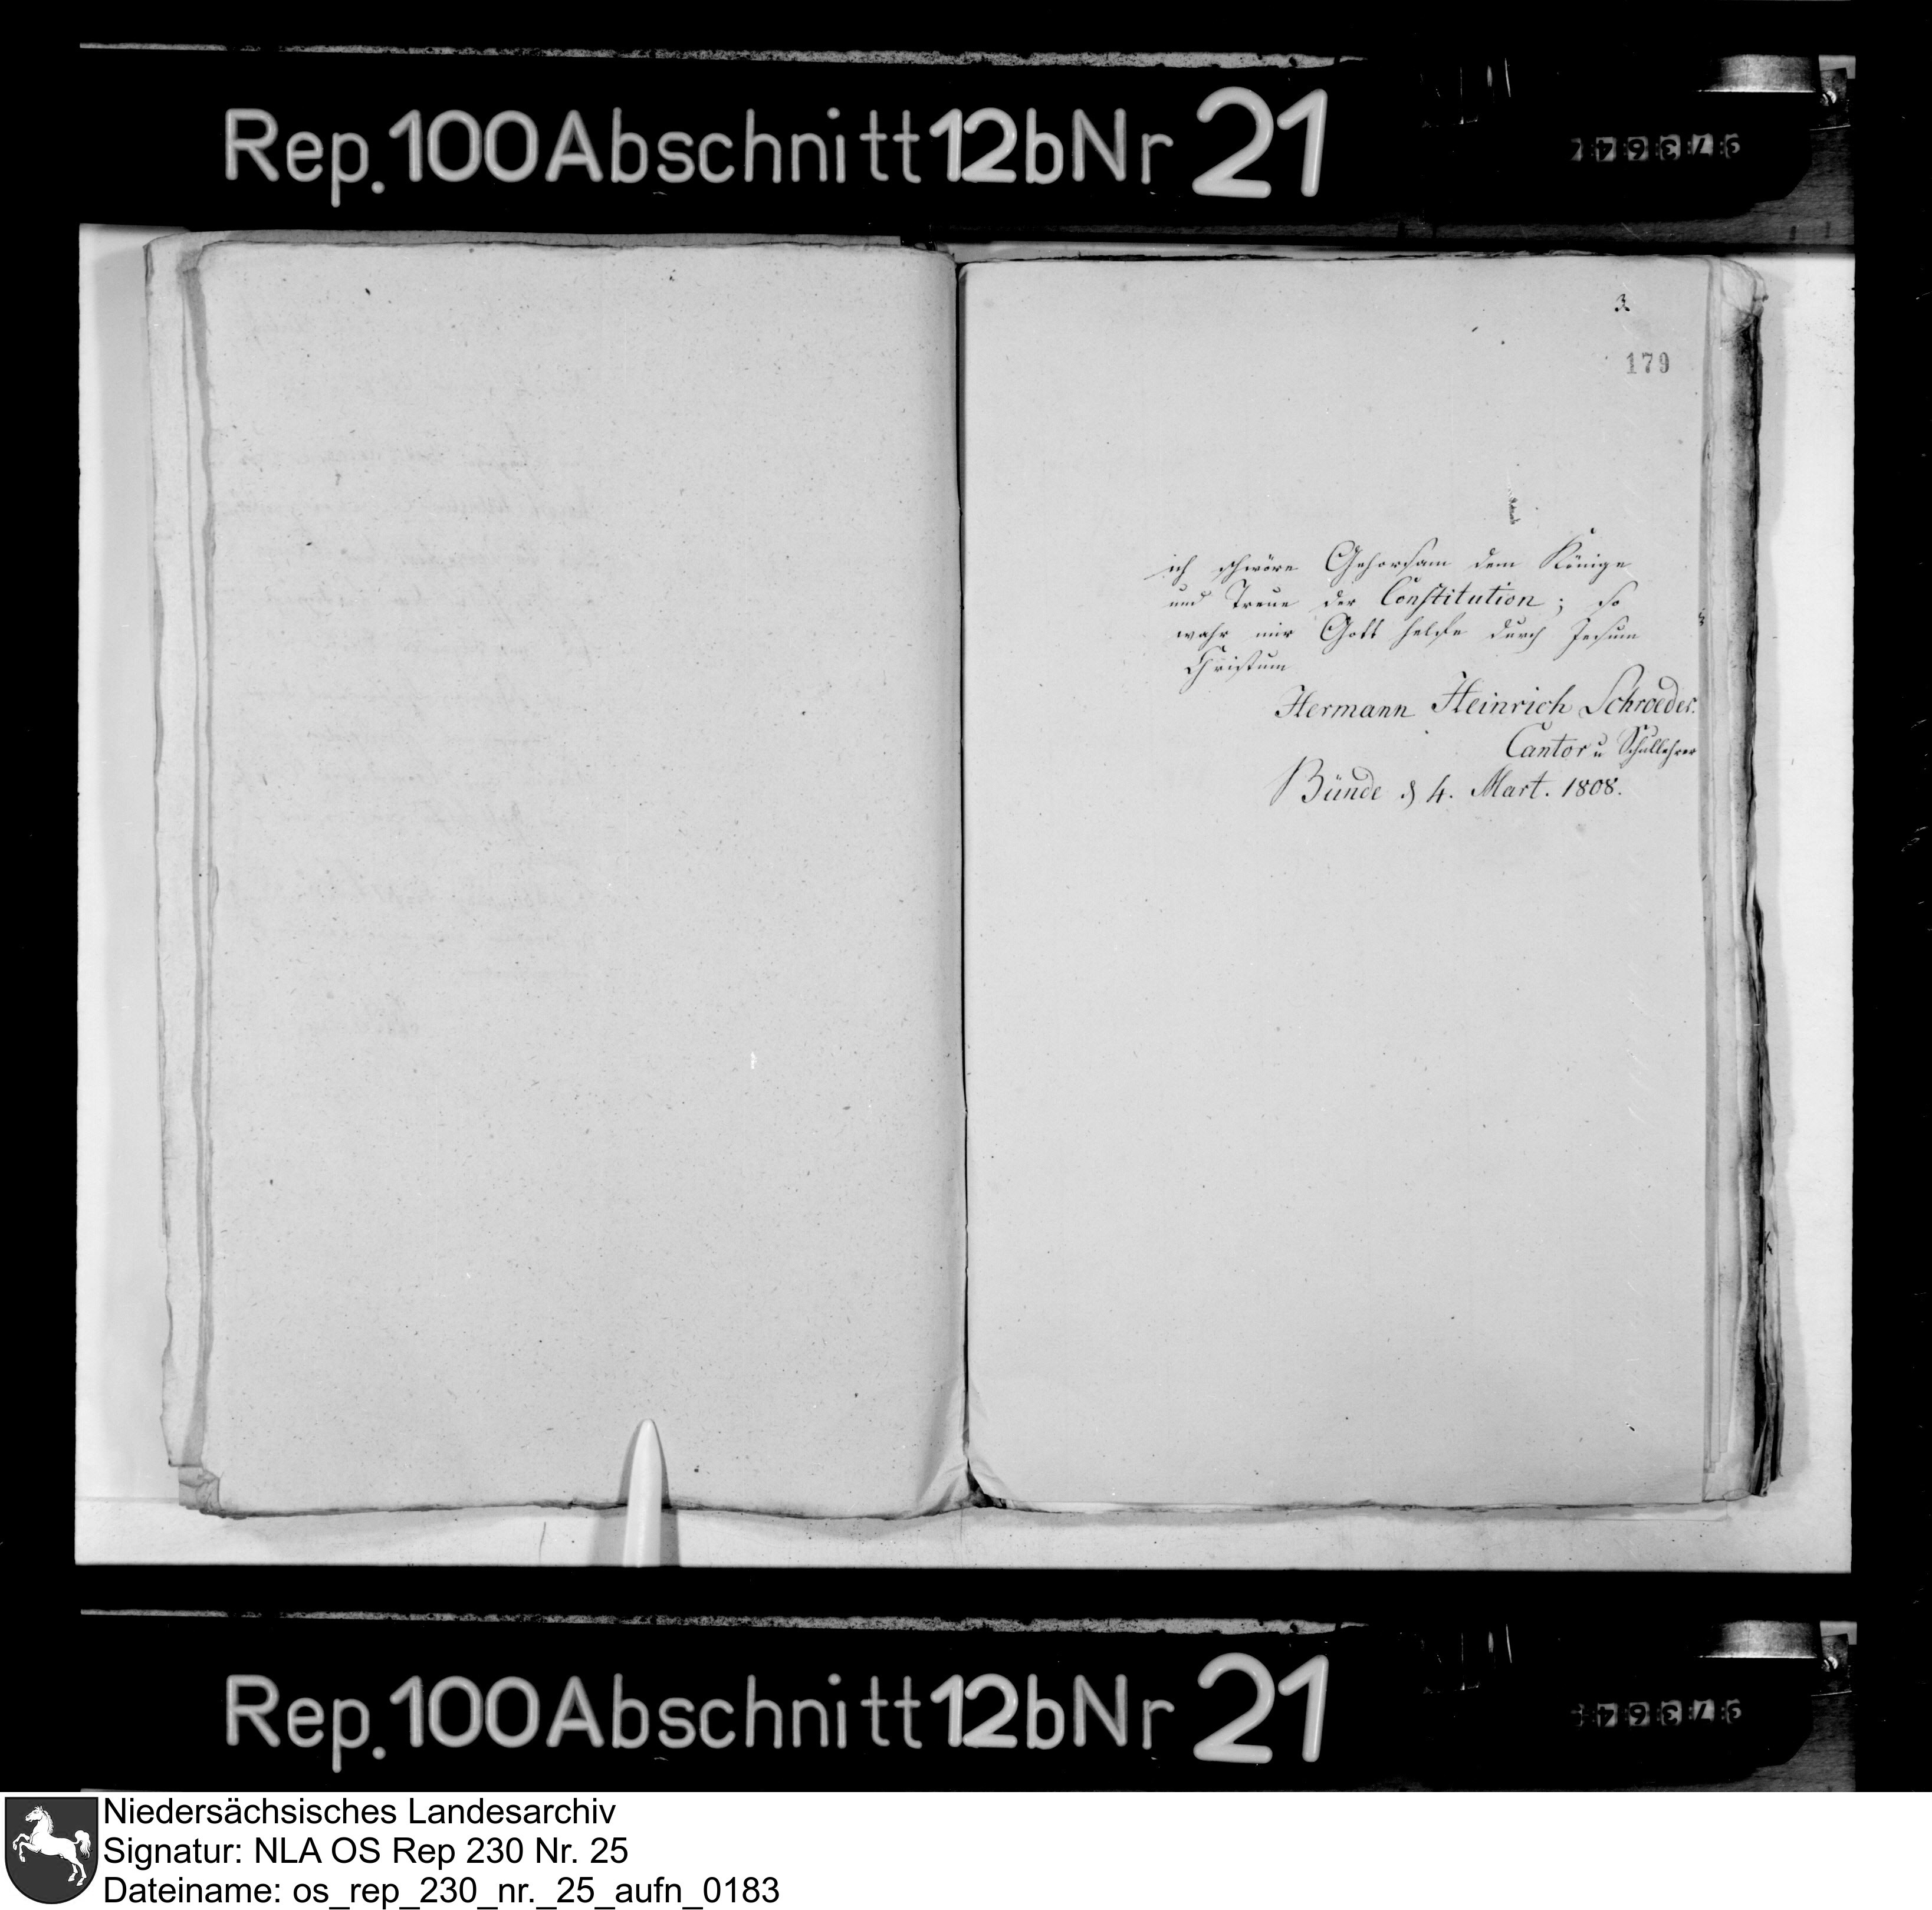 Rep. 100 Abschnitt 12b Nr 21
3
179
ich schwöre Gehorsam dem Könige
und Treue der Constitution; so
wahr mir Gott helfe durch Jesum
Christum
Hermann Heinrich Schroeder.
Cantor u Schullehrer
Bünde d 4. Mart. 1808.
Rep. 100 Abschnitt 12b Nr 21
Niedersächsisches Landesarchiv
Signatur: NLA OS Rep 230 Nr. 25
Dateiname: os_rep_230_nr._25_aufn_0183